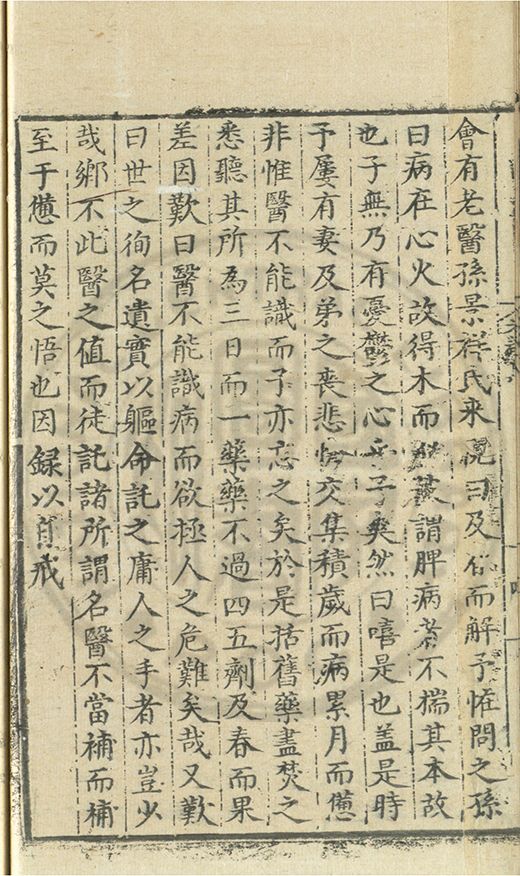 會有老醫孫景祥氏來視曰及春而解予怪問之孫
曰病在心火故得木而解彼謂脾病者不揣其本故
也子無乃有憂鬱之心乎予矍然曰嘻是也盖是時
予屢有妻及弟之喪悲愴交集積歲而病累月而憊
非惟醫不能識而予亦忘之矣於是括舊藥盡焚之
悉聽其所為三日而一藥藥不過四五劑及春而果
差因歎曰醫不能識病而欲極人之危難矣哉又歎
曰世之徇名遺實以軀命託之庸人之手者亦豈少
哉鄉不此醫之值而徒託諸所謂名醫不當補而補
至于憊而莫之悟也因録以自戒